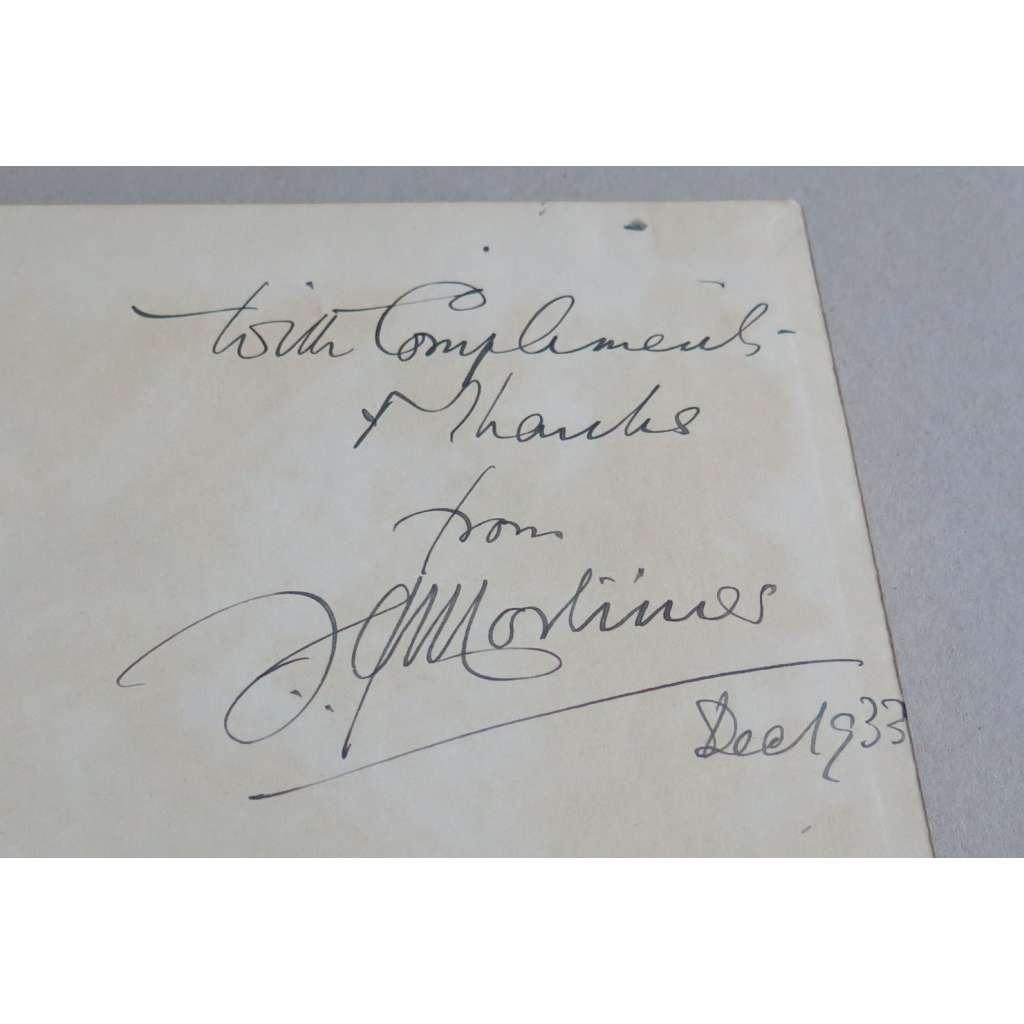 With Compliments
& Thanks
from
F. J. Mortimer
Dec 1933